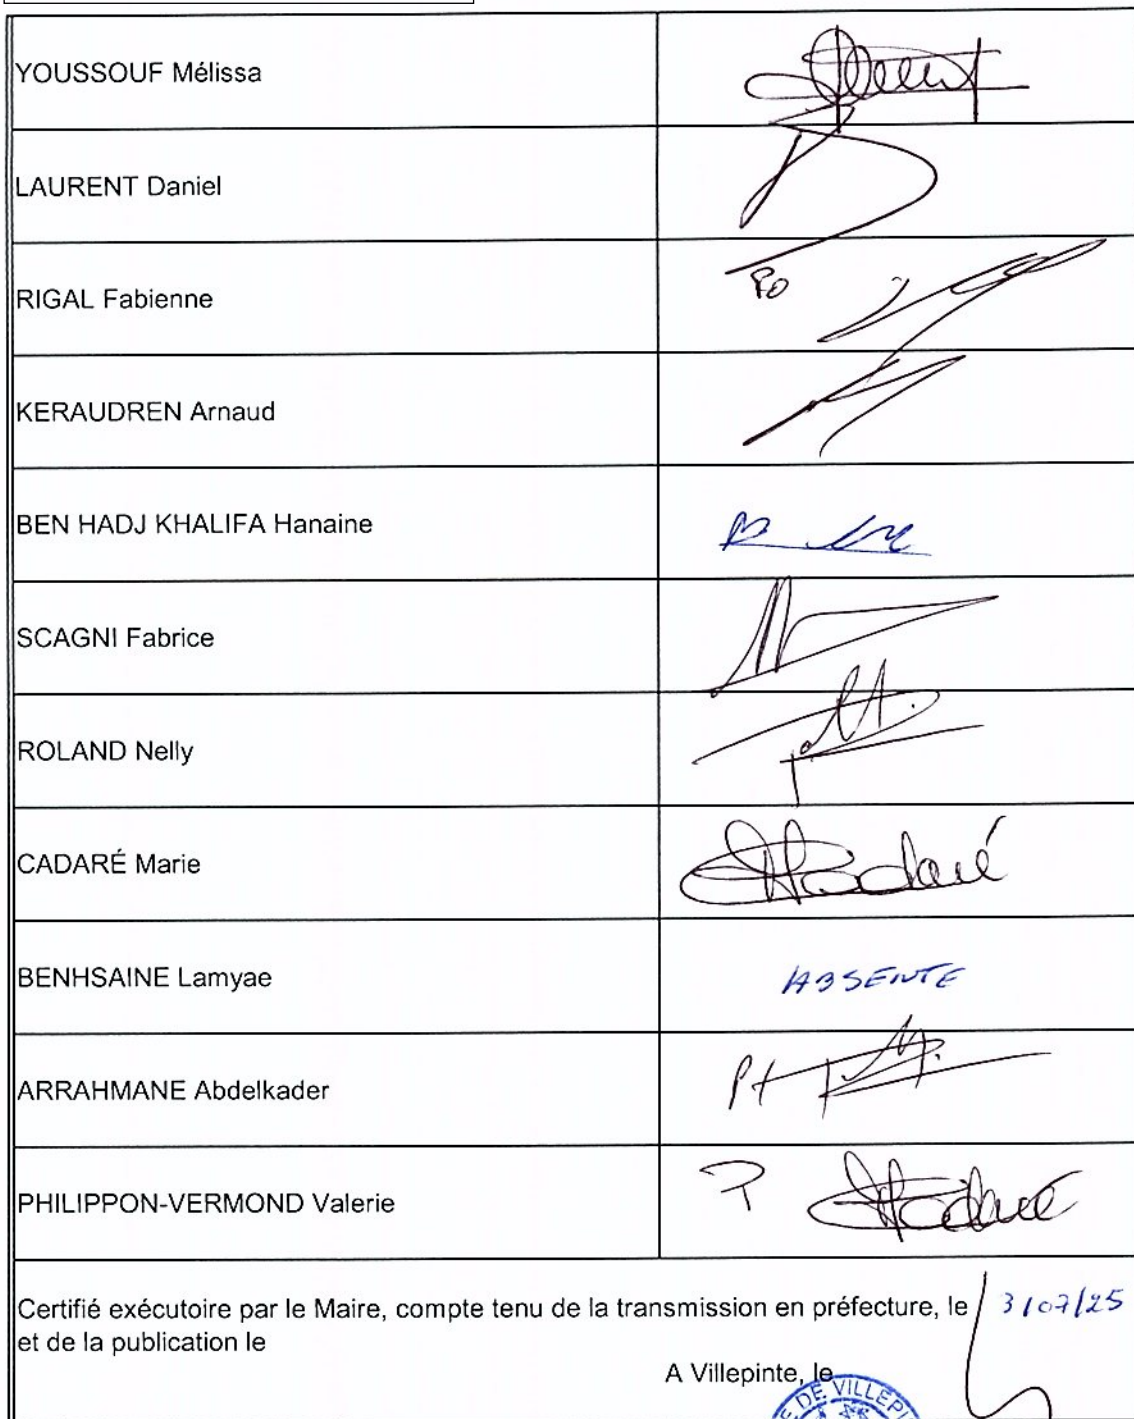 YOUSSOUF Mélissa
LAURENT Daniel
RIGAL Fabienne
Po
KERAUDREN Arnaud
BEN HADJ KHALIFA Hanaine
SCAGNI Fabrice
ROLAND Nelly
CADARÉ Marie Cadaré
BENHSAINE Lamyae ABSENTE
ARRAHMANE Abdelkader
PHILIPPON-VERMOND Valerie P Cadaré
Certifié exécutoire par le Maire, compte tenu de la transmission en préfecture, le 3/07/25
et de la publication le
A Villepinte, le
DE VILLEPI